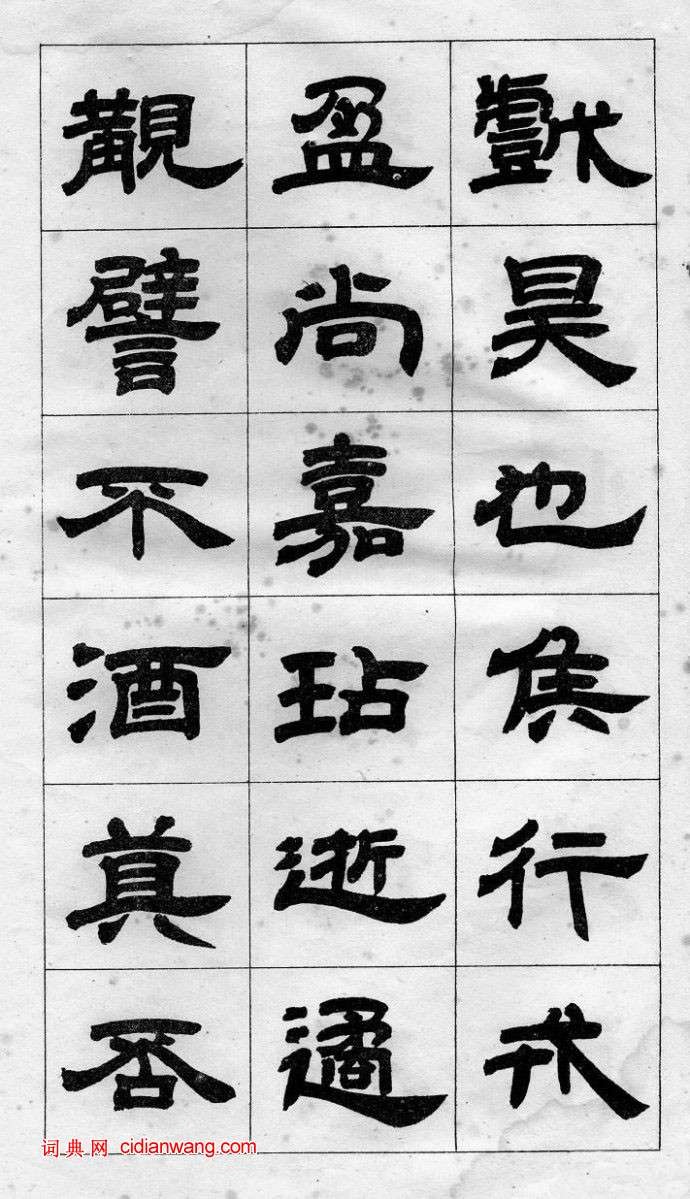 戲昊也焦行戎
盈尚嘉玷逝遹
覲譬不酒真否
词典网 cidianwang.com